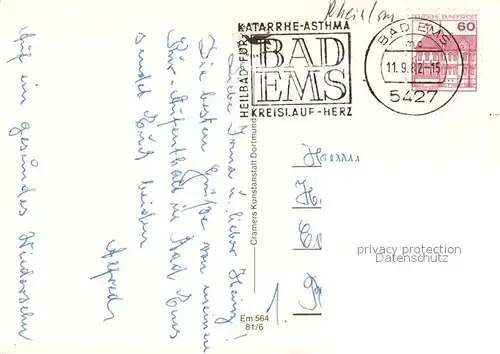 Rhein/Lm
KATARRHE-ASTHMA
HEILBAD FÜR
BAD
EMS
KREISLAUF-HERZ
BAD EMS
11.9.82-15
5427
DEUTSCHE BUNDESPOST
60
Liebe Irma u. lieber Heinz!
Die besten Grüße von meinem
Kur-Aufenthalt in Bad Ems
sendet Euch beiden
Alfred
Auf ein gesundes Wiedersehn
Cramers Kunstanstalt Dortmund
Em 564
81/6
Herrn
H.
1.
privacy protection
Datenschutz